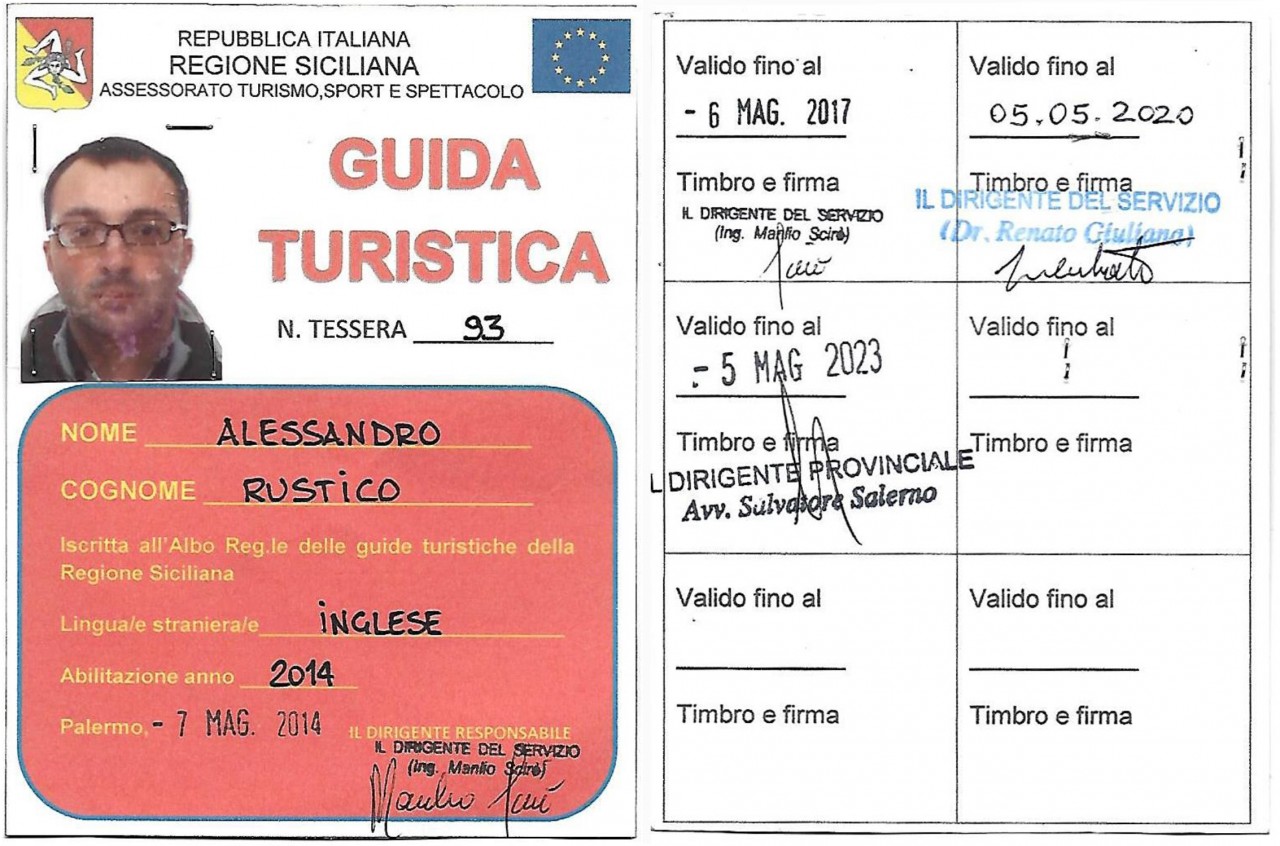 REPUBBLICA ITALIANA
REGIONE SICILIANA
ASSESSORATO TURISMO,SPORT E SPETTACOLO
GUIDA
TURISTICA
N. TESSERA 93
NOME ALESSANDRO
COGNOME RUSTICO
Iscritta all'Albo Reg.le delle guide turistiche della
Regione Siciliana
Lingua/e straniera/e INGLESE
Abilitazione anno 2014
Palermo, - 7 MAG. 2014
IL DIRIGENTE RESPONSABILE
IL DIRIGENTE DEL SERVIZIO
(Ing. Manlio Scirè)
Manlio Scirè
Valido fino al
- 6 MAG. 2017
Timbro e firma
IL DIRIGENTE DEL SERVIZIO
(Ing. Manlio Scirè)
Valido fino al
05.05.2020
Timbro e firma
IL DIRIGENTE DEL SERVIZIO
(Dr. Renato Giuliana)
Valido fino al
- 5 MAG 2023
Timbro e firma
L DIRIGENTE PROVINCIALE
Avv. Salvatore Salerno
Valido fino al
Timbro e firma
Valido fino al
Timbro e firma
Valido fino al
Timbro e firma